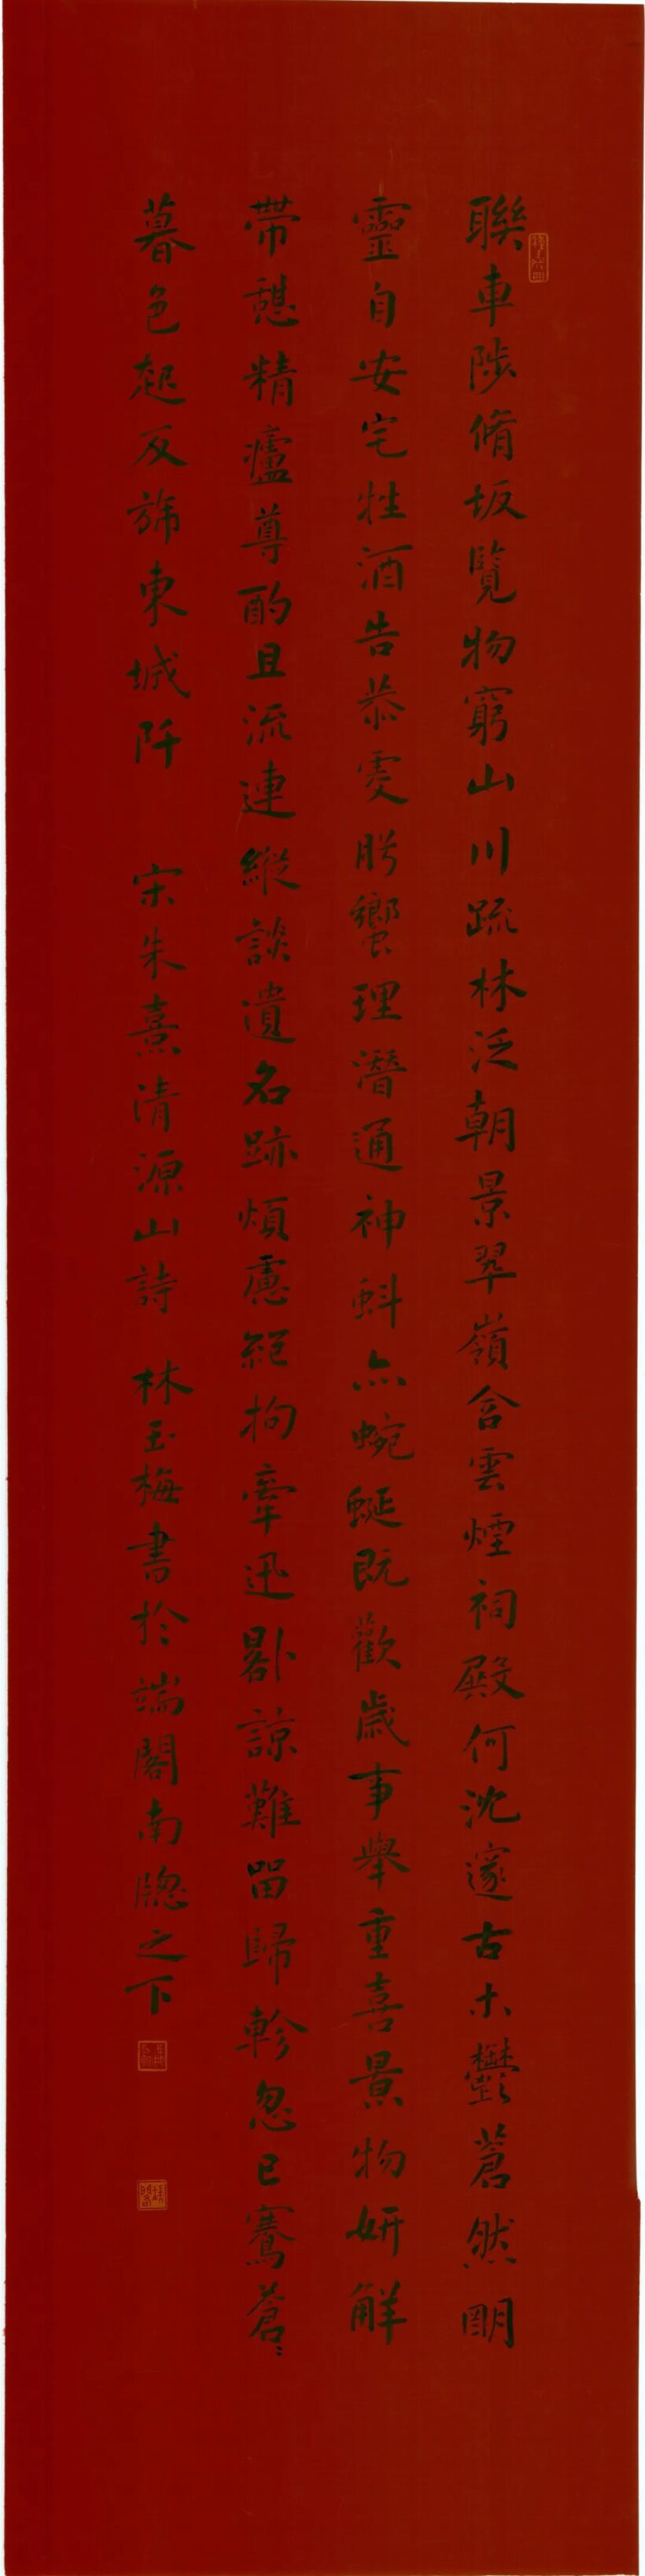 聯車陟脩坂覽物窮山川疏林泛朝景翠嶺含雲煙祠殿何沈邃古木鬱蒼然明
靈自安宅牲酒告恭虔肸蠁理潛通神蚪亦蜿蜒既歡歲事舉重喜景物妍解
帶憩精廬尊酌且流連縱談遺名跡煩慮絕拘牽迅晷諒難留歸軫忽已騫蒼〻
暮色起反旆東城阡 宋朱熹清源山詩 林玉梅書於端閣南牕之下